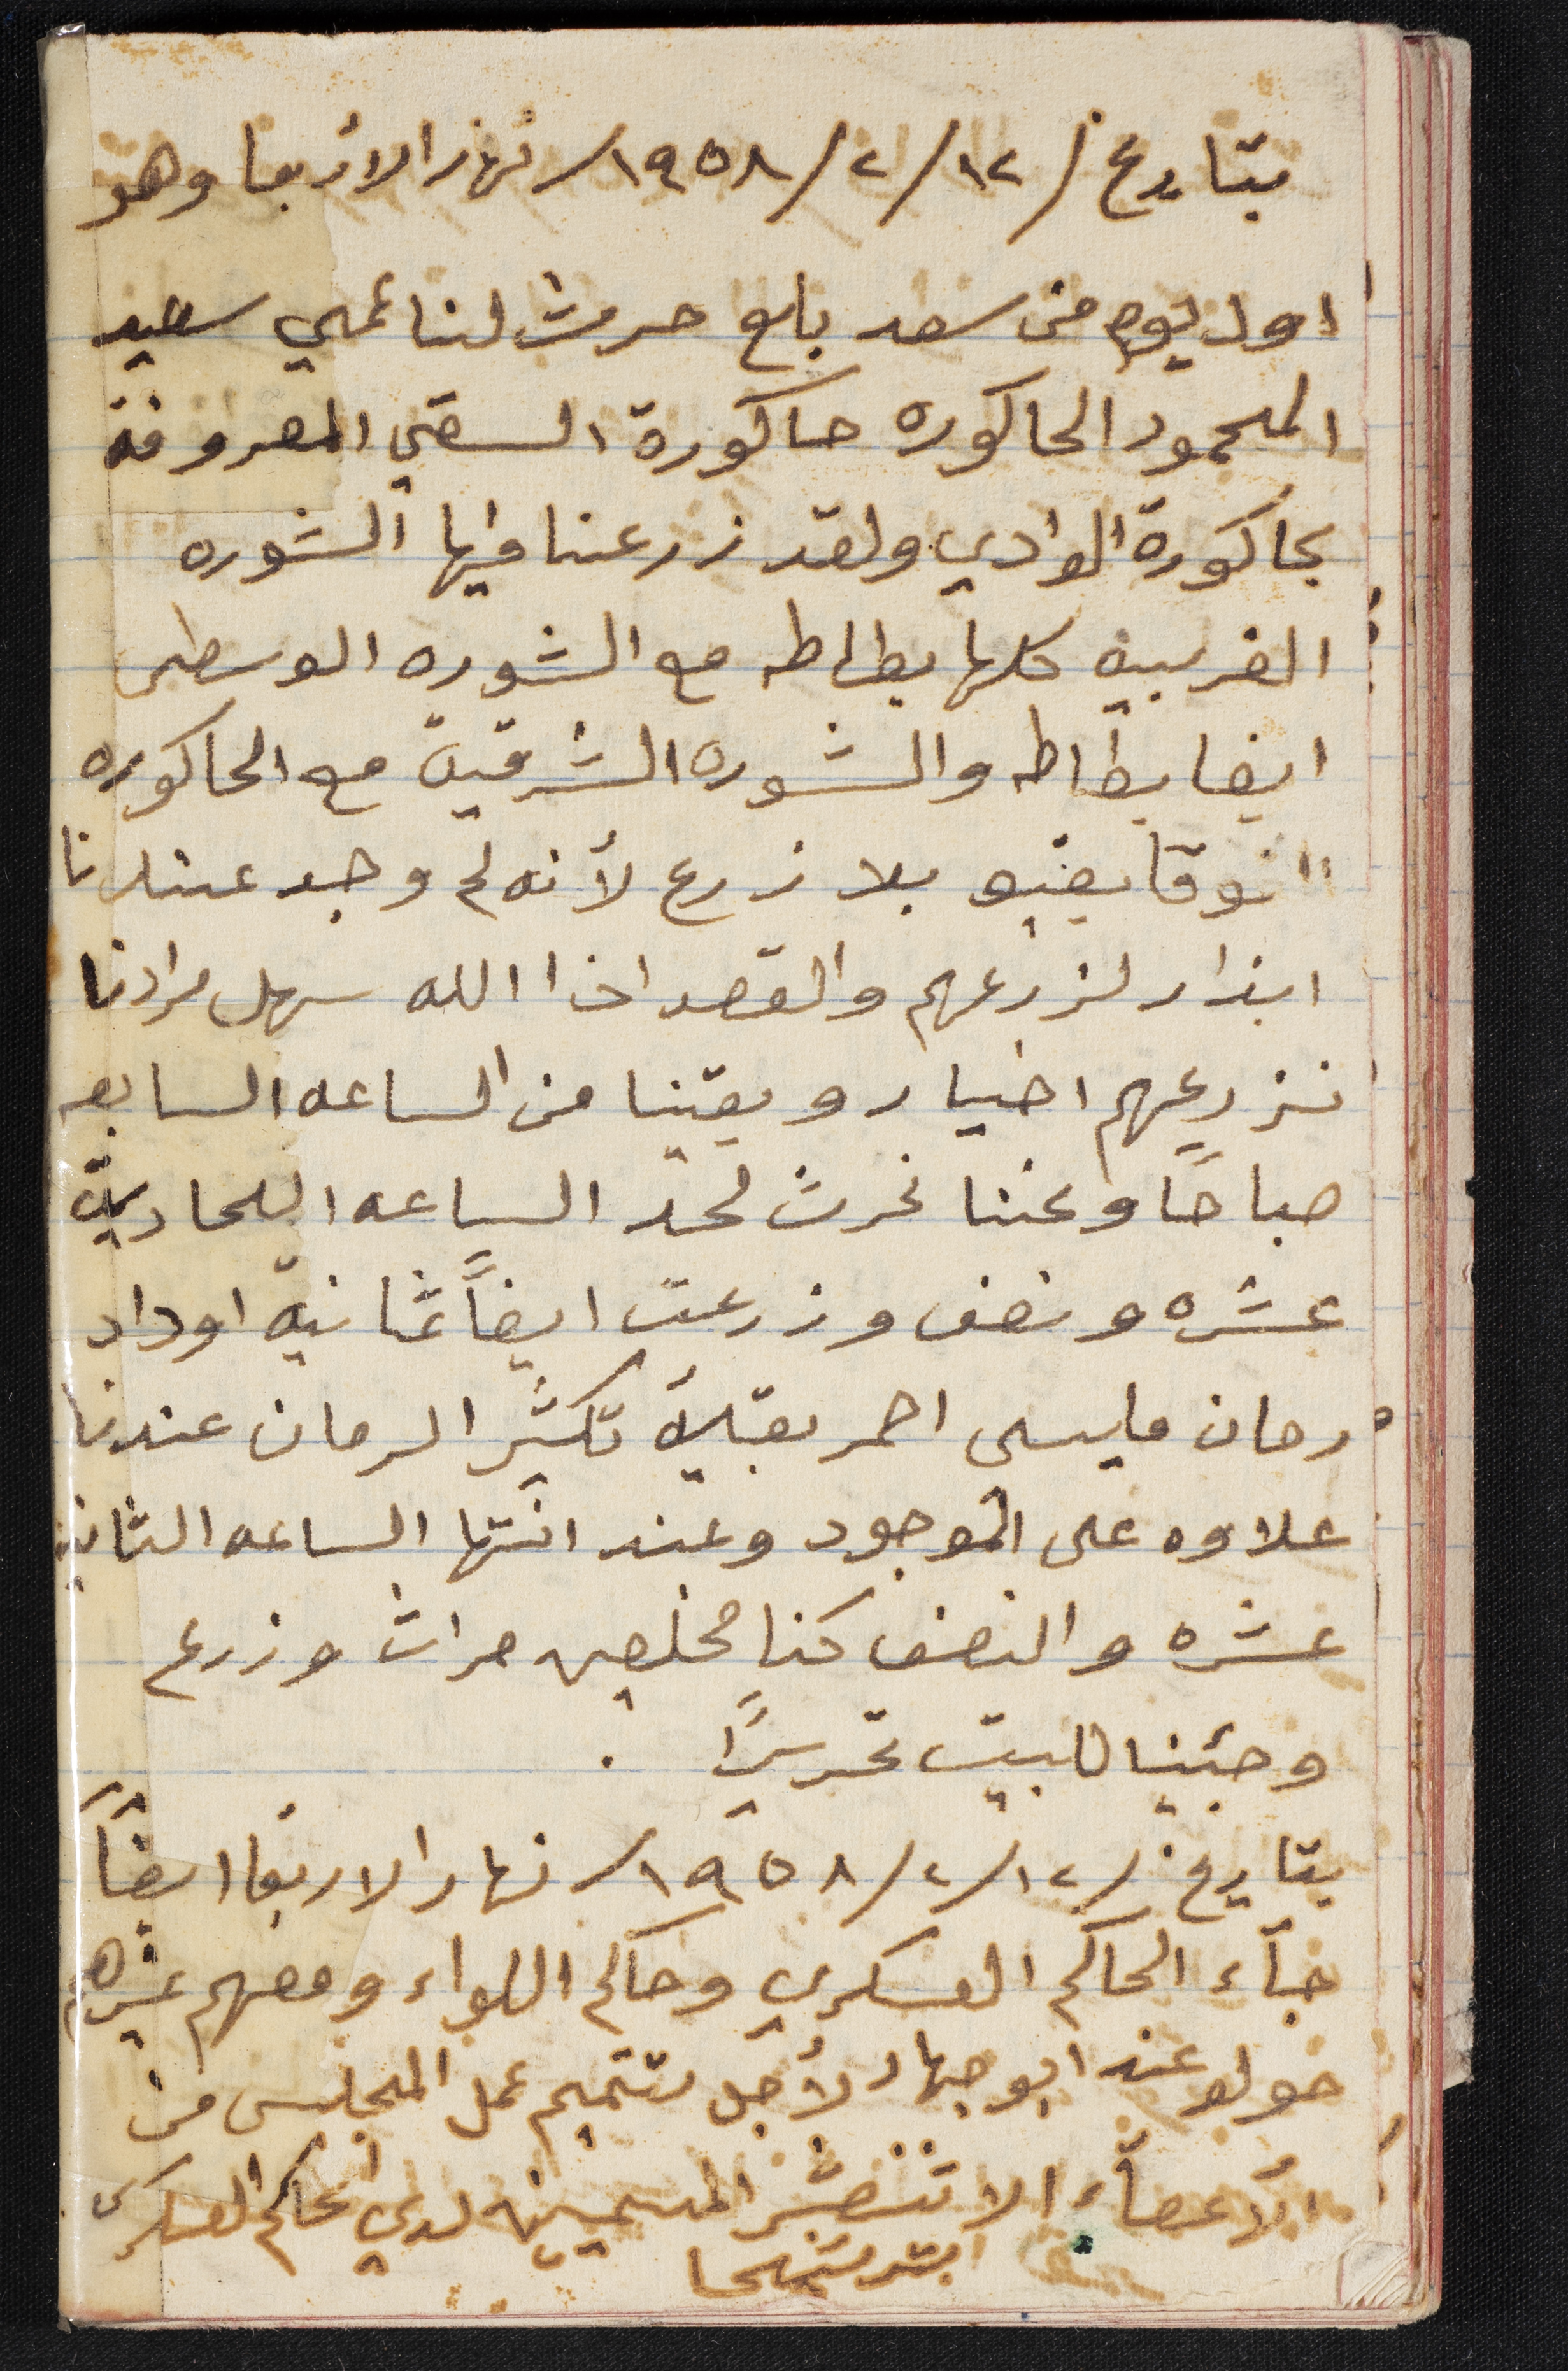 بتاريخ /١٢/٢/١٩٥٨/ نهار الأربعا وهو
اول يوم من سعد بلع حرث لنا عمي سعيد
المحمود الحاكوره حاكورة السقي المعروفة
بحاكورة الوادي ولقد زرعنا فيها الشوره
الغربيه كلها بطاطه مع الشوره الوسطى
ايضا بطاطه والشوره الشرقية مع الحاكوره
الفوقا بقيو بلا زرع لأنه لم وجد عندنا
ابذار لزرعهم والقصد اذا الله سهل مرادنا
نزرعهم اخيار وبقينا من الساعه السابعه
صباحًا وعنا نحرث لحد الساعه الحادية
عشره ونصف وزرعت ايضاً ثمانية اوداد
رمان مليسى احمر بقبلة تكثير الرمان عندنا
علاوه على الموجود وعند انتها الساعه الثانيه
عشره والنصف كنا مخلصين حراث وزرع
وجئنا للبيت تحريرًا .
بتاريخ /١٢/٢/١٩٥٨/ نهار الاربعا ايضاً
جآء الحاكم العسكري وحاكم اللواء ومعهم غيرهم
حولو عند ابو جهاد لأجل تتميم عمل المجلس من
الأعضآء الا تنضر المسميين لدي الحاكم العسكري
بترشيحا